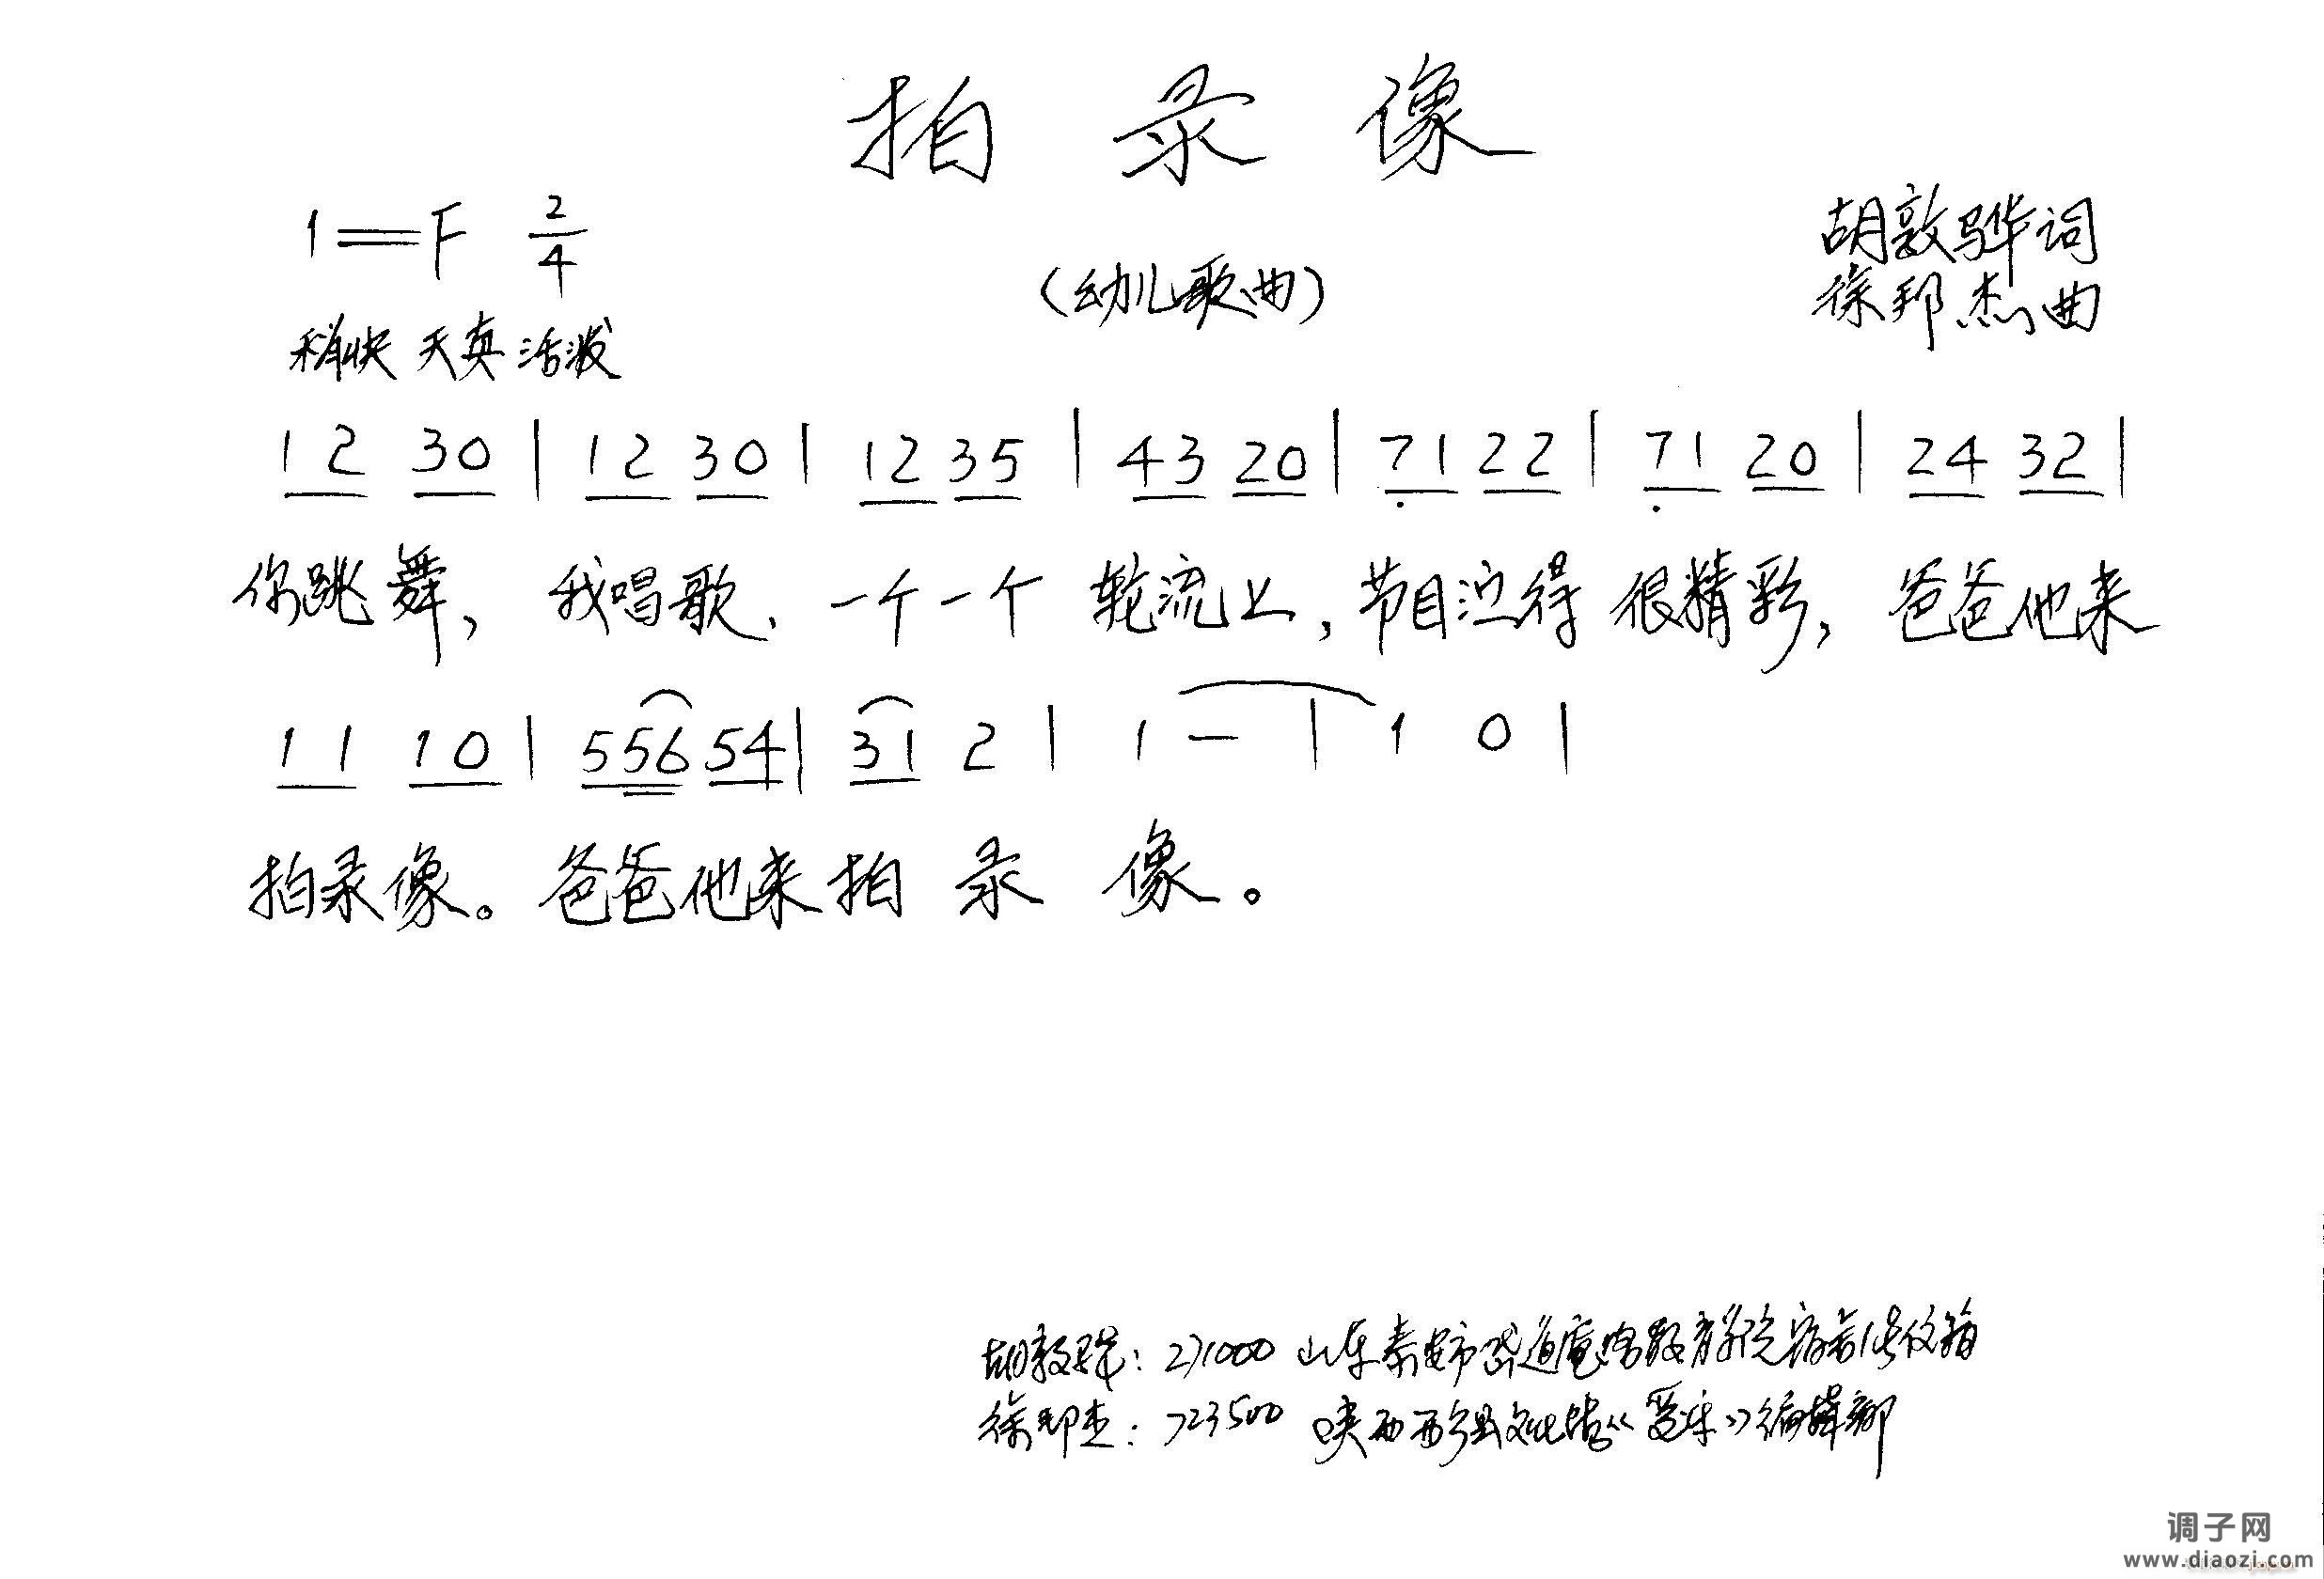 拍录像
1=F 2/4
胡敦骅词
(幼儿歌曲)
徐邦杰曲
稍快 天真 活泼
12 30 | 12 30 | 12 35 | 43 20 | 71 22 | 71 20 | 24 32 |
你跳舞, 我唱歌、一个一个 轮流上, 节目演得 很精彩, 爸爸他来
11 10 | 556 54 | 31 2 | 1 — | 1 0 |
拍录像。爸爸他来拍 录 像。
胡敦骅: 271000 山东泰安市岱道庵路教育学院宿舍 信箱
徐邦杰: 723500 陕西西乡县文化馆《 》编辑部
调子网
www.diaozi.com